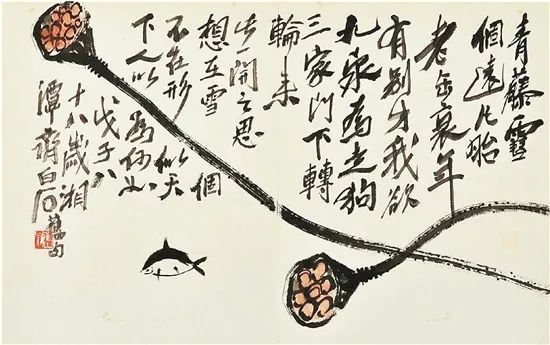 青藤雪
個遠凡胎
老缶衰年
有别才我欲
九泉為走狗
三家門下轉
輪来
此一開之思
想在雪個
不在形似天
下人以為何如
戊子八
十八歲湘
潭齊白石舊句